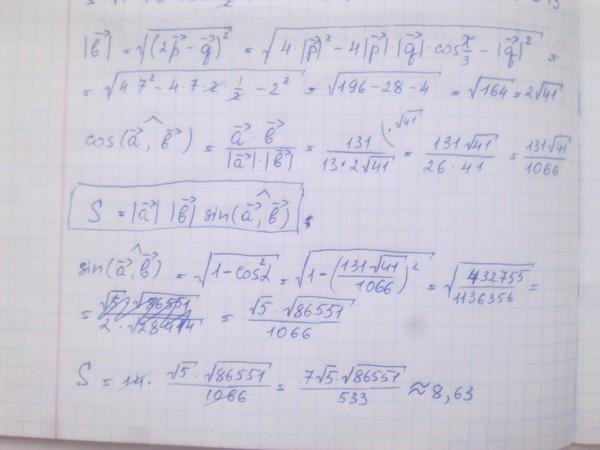 |b⃗| = √(2p⃗ - q⃗)² = √4·|p⃗|² - 4|p⃗|·|q⃗|·cos π/3 - |q⃗|² =
= √4·7² - 4·7·2·1/2 - 2² = √196 - 28 - 4 = √164 = 2√41
cos(a⃗, b⃗) = a⃗·b⃗/|a⃗|·|b⃗| = 131/13·2√41 (·√41 = 131√41/26·41 = 131√41/1066
S = |a⃗| |b⃗| sin(a⃗, b⃗)
sin(a⃗, b⃗) = √1 - cos²α = √1 - (131·√41/1066)² = √432755/1136356 =
= √5·√86551/1066
S = 14 · √5·√86551/1066 = 7√5·√86551/533 ≈ 8,63